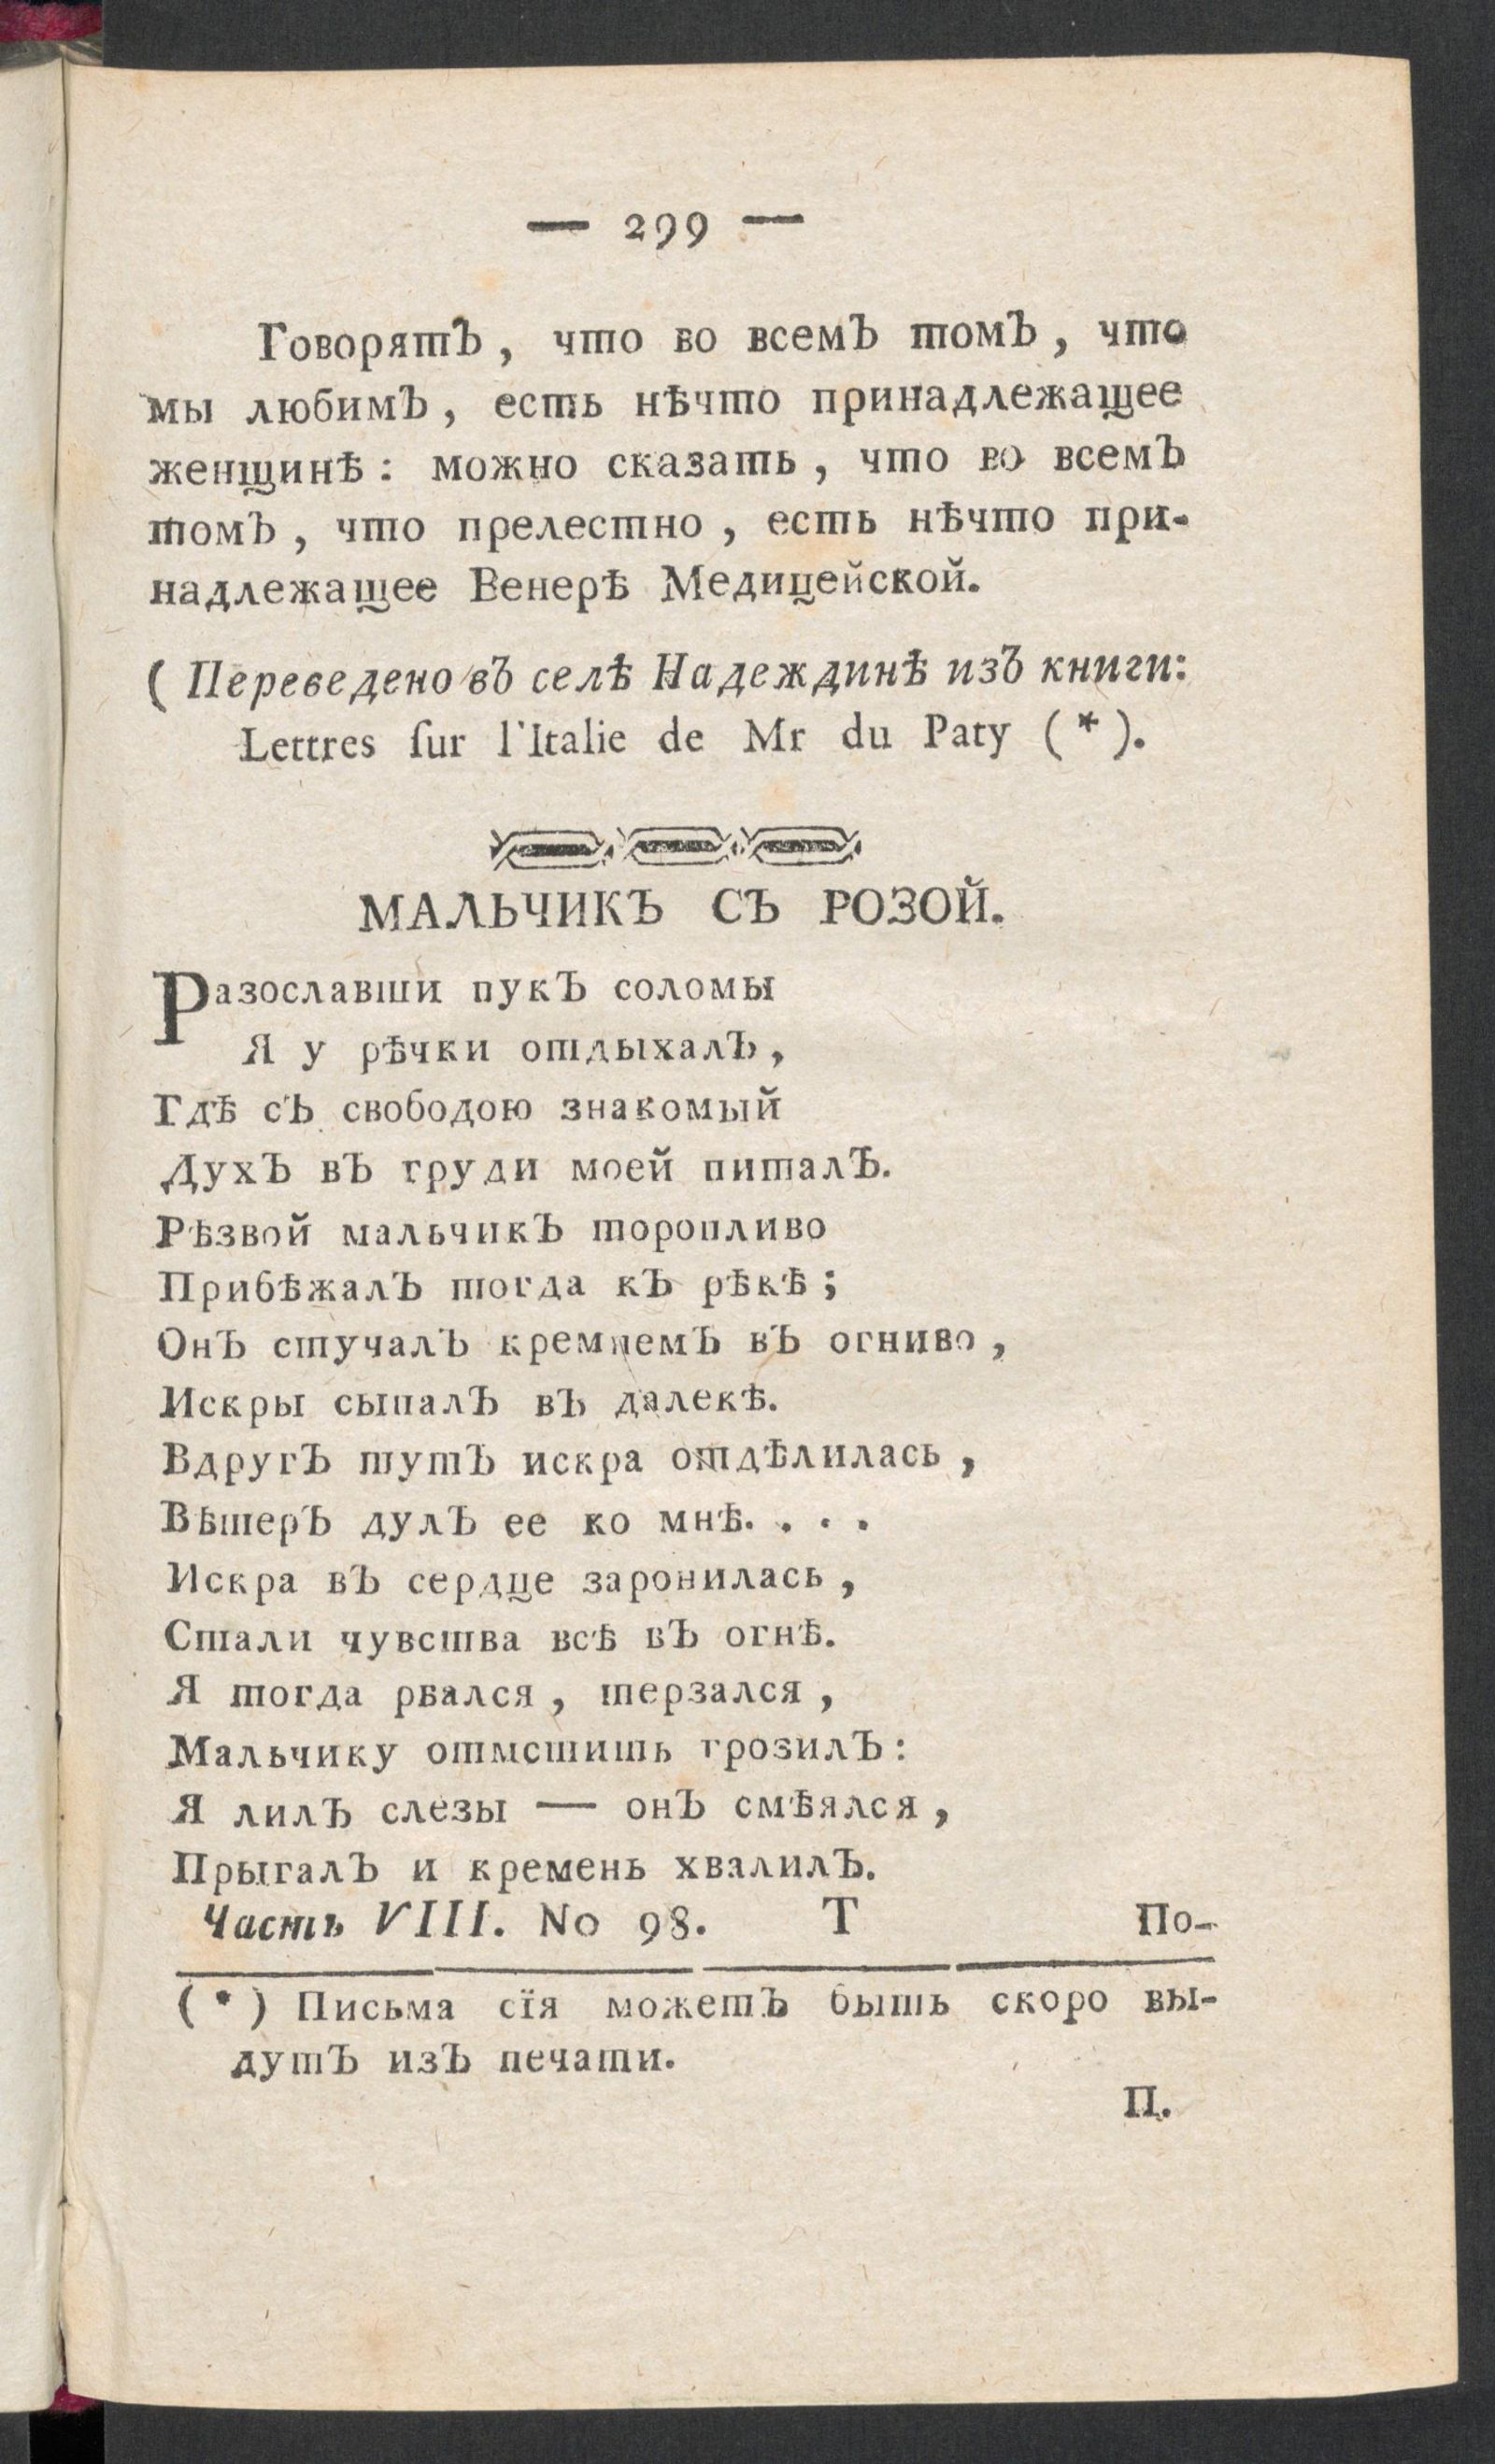 — 299 —
Говорятъ, что во всемъ томъ, что
мы любимъ, есть нѣчто принадлежащее
женщинѣ: можно сказать, что во всемъ
томъ, что прелестно, есть нѣчто при-
надлежащее Венерѣ Медицейской.
(Переведено въ селѣ Надеждинѣ изъ книги:
Lettres ſur l'Italie de Mr du Paty (*).
МАЛЬЧИКЪ СЪ РОЗОЙ.
Разославши пукъ соломы
Я у рѣчки отдыхалъ,
Гдѣ съ свободою знакомый
Духъ въ груди моей питалъ.
Рѣзвой мальчикъ торопливо
Прибѣжалъ тогда къ рѣкѣ;
Онъ стучалъ кремнемъ въ огниво,
Искры сыпалъ въ далекѣ.
Вдругъ тутъ искра отдѣлилась,
Вѣтеръ дулъ ее ко мнѣ. . . .
Искра въ сердце заронилась,
Стали чувства всѣ въ огнѣ.
Я тогда рвался, терзался,
Мальчику отмстить грозилъ:
Я лилъ слезы — онъ смѣялся,
Прыгалъ и кремень хвалилъ.
Часть VIII. No 98. Т По-
(*) Письма сїя можетъ быть скоро вы-
дутъ изъ печати.
П.